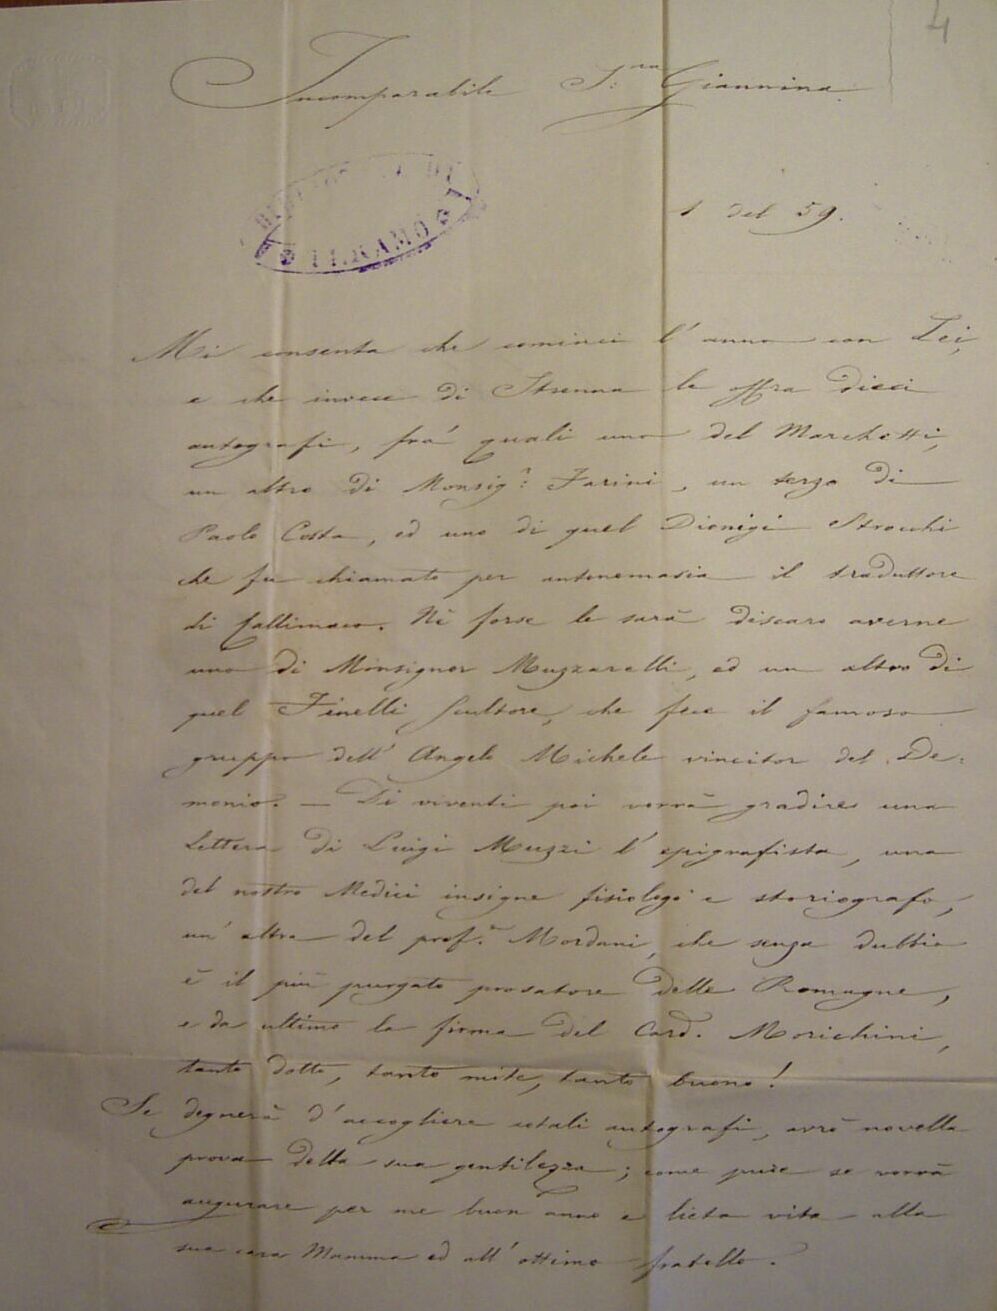 4
Incomparabile S:ra Giannina
BIBLIOTECA DI
TERAMO
1 del 59.
Mi consenta che cominci l'anno con Lei,
e che invece di Strenna le offra dieci
autografi, fra' quali uno del Marchetti,
un altro di Monsig.r Farini, un terzo di
Paolo Costa, ed uno di quel Dionigi Strocchi
che fu chiamato per antonomasia il traduttore
di Callimaco. Nè forse le sarà discaro averne
uno di Monsignor Muzzarelli, ed un altro di
quel Finelli Scultore, che fece il famoso
gruppo dell'Angelo Michele vincitor del De=
monio. — Di viventi poi vorrà gradire una
Lettera di Luigi Muzzi l'epigrafista, una
del nostro Medici insigne fisiologo e storiografo,
un'altra del prof.r Mordani, che senza dubbio
è il più purgato prosatore delle Romagne,
e da ultimo la firma del Card. Morichini,
tanto dotto, tanto mite, tanto buono!
Se degnerà d'accogliere cotali autografi, avrò novella
prova della sua gentilezza; come pure se vorrà
augurare per me buon anno e lieta vita alla
sua cara Mamma ed all'ottimo fratello.